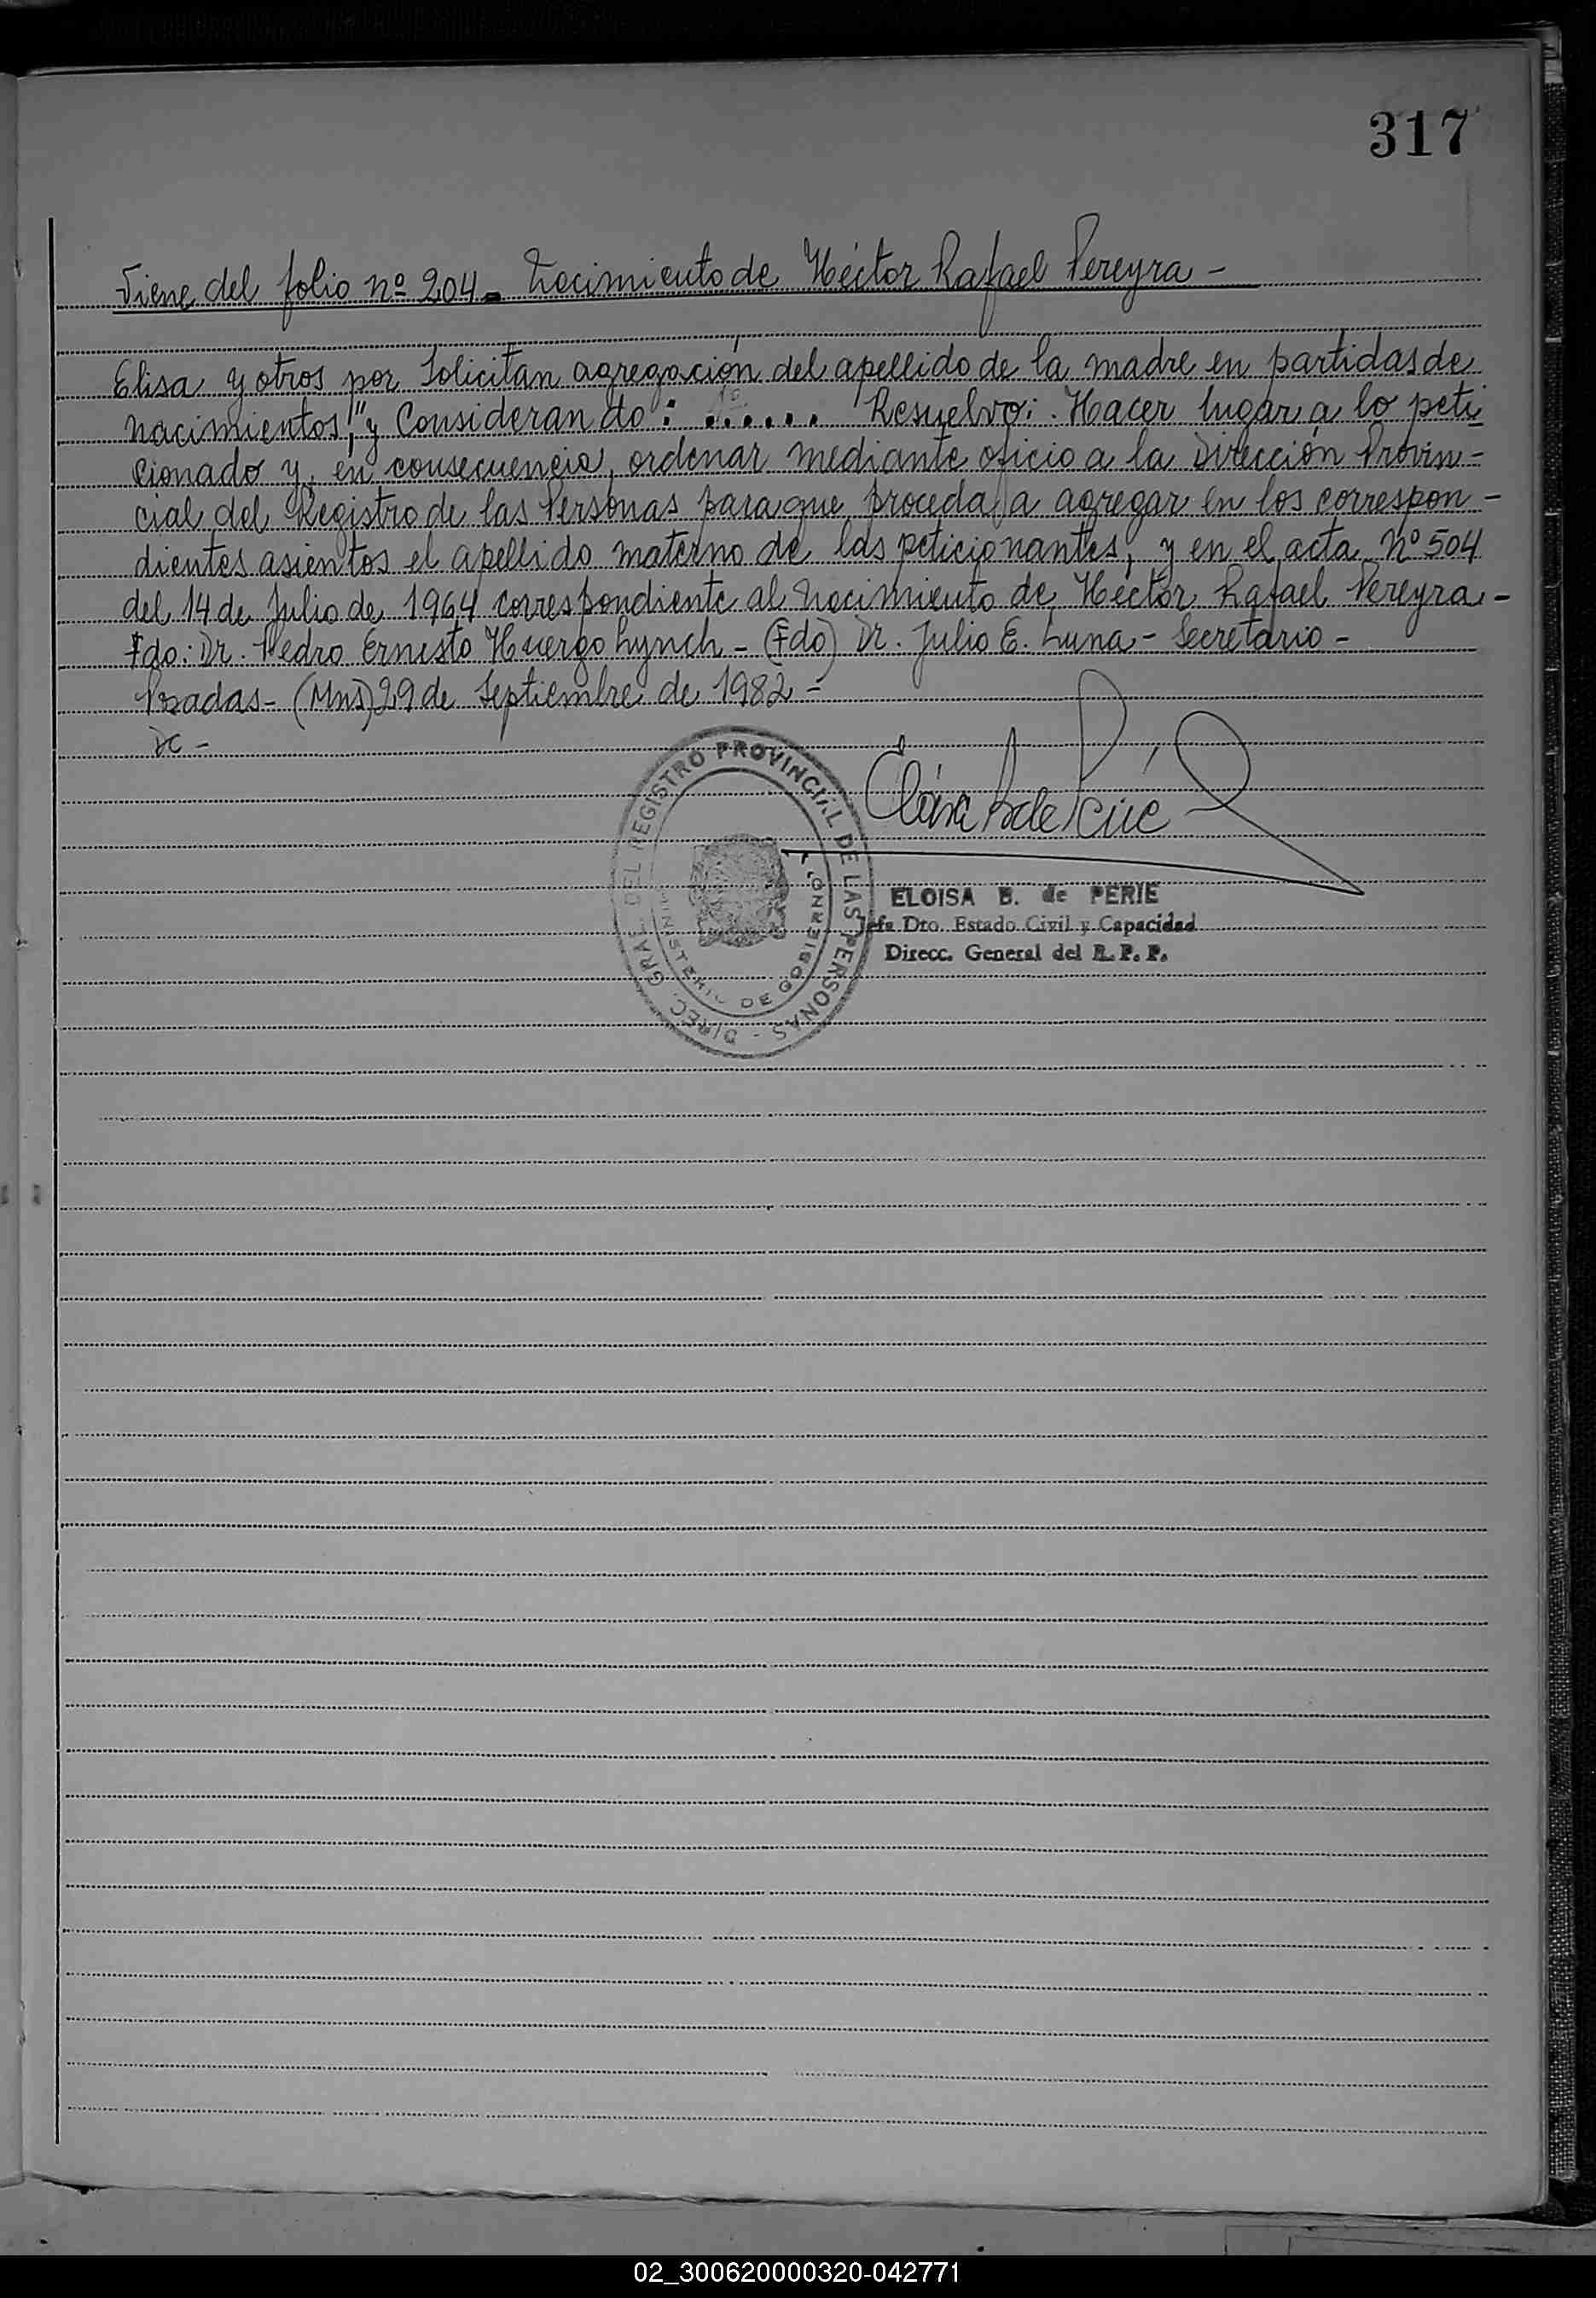 317
Viene del folio nº 204 - Nacimiento de Héctor Rafael Pereyra -
Elisa y otros por Solicitan agregación del apellido de la madre en partidas de
nacimientos", y Considerando: ...... Resuelvo: Hacer lugar a lo peti
cionado y, en consecuencia, ordenar mediante oficio a la Dirección Provin-
cial del Registro de las Personas para que proceda a agregar en los correspon-
dientes asientos el apellido materno de los peticionantes, y en el acta nº 504
del 14 de Julio de 1964 correspondiente al nacimiento de Héctor Rafael Pereyra -
Fdo: Dr. Pedro Ernesto Huergo Lynch - (Fdo) Dr. Julio E. Luna - Secretario -
Posadas - (Mns) 29 de Septiembre de 1982 -
DC -
DIREC. GRAL. DEL REGISTRO PROVINCIAL DE LAS PERSONAS -
MINISTERIO DE GOBIERNO
ELOISA B. de PERIE
Jefe Dto. Estado Civil y Capacidad
Direcc. General del R. P. P.
02_300620000320-042771